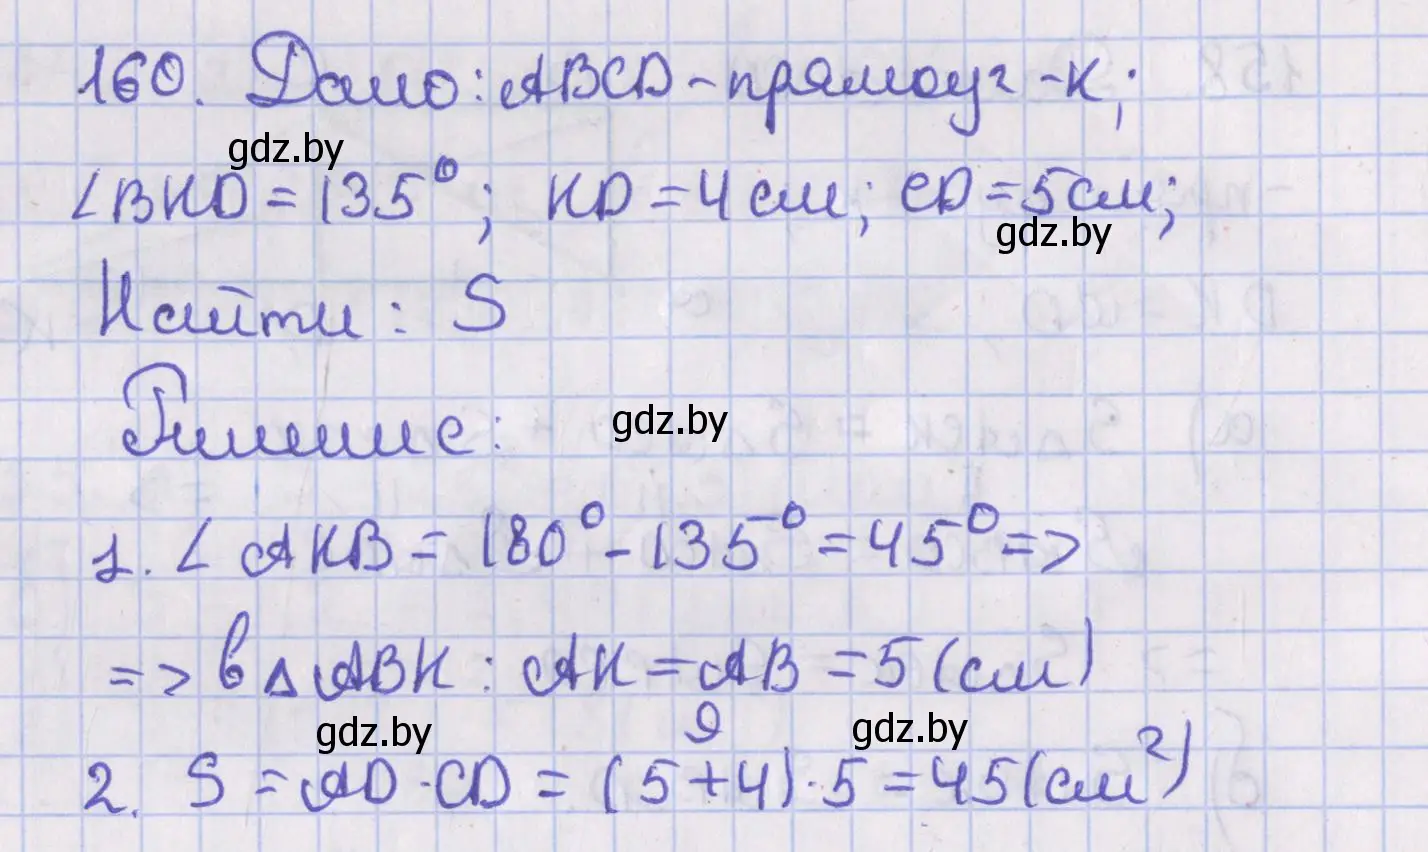 160. Дано: ABCD - прямоуг-к;
gdz.by
∠BKD = 135°; KD = 4 см; CD = 5 см;
gdz.by
Найти: S
Решение:
gdz.by
1. ∠AKB = 180° - 135° = 45° =>
=> в △ABK: AK = AB = 5 (см)
gdz.by
9
gdz.by
2. S = AD · CD = (5 + 4) · 5 = 45 (см²)